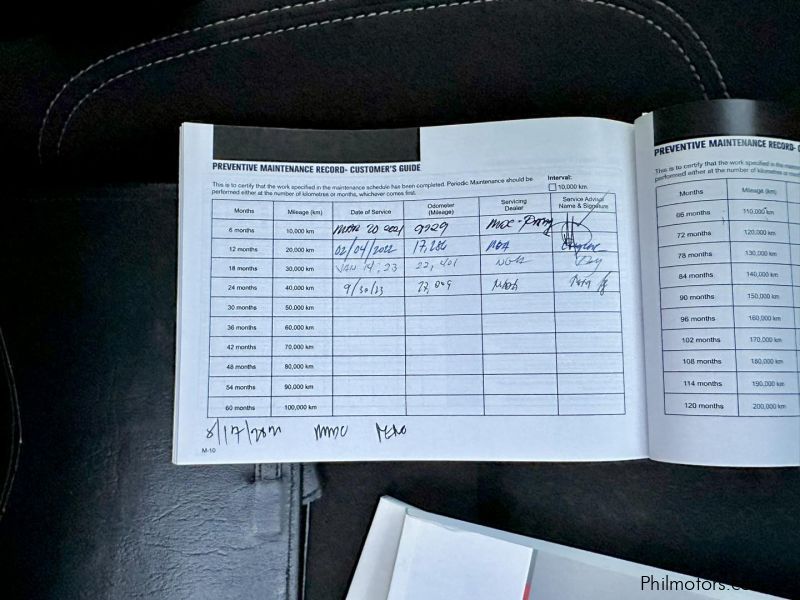 PREVENTIVE MAINTENANCE RECORD- CUSTOMER'S GUIDE
This is to certify that the work specified in the maintenance schedule has been completed. Periodic Maintenance should be
performed either at the number of kilometres or months, whichever comes first.
Interval:
10,000 km
Months Mileage (km) Date of Service Odometer (Mileage) Servicing Dealer Service Advisor Name & Signature
6 months 10,000 km MAR 20 2021 9229
12 months 20,000 km 02/04/2022 17,286
18 months 30,000 km JAN 14, 23 22, 401
24 months 40,000 km 9/30/23
30 months 50,000 km
36 months 60,000 km
42 months 70,000 km
48 months 80,000 km
54 months 90,000 km
60 months 100,000 km
M-10
PREVENTIVE MAINTENANCE RECORD-
This is to certify that the work specified in the
performed either at the number of kilometres or
Months Mileage (km)
66 months 110,000 km
72 months 120,000 km
78 months 130,000 km
84 months 140,000 km
90 months 150,000 km
96 months 160,000 km
102 months 170,000 km
108 months 180,000 km
114 months 190,000 km
120 months 200,000 km
Philmotors.co